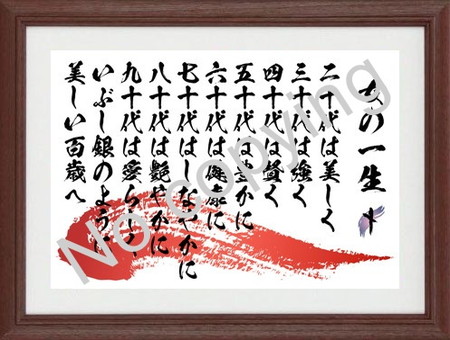 女の一生
二十代は美しく
三十代は強く
四十代は賢く
五十代は豊かに
六十代は健康に
七十代はしなやかに
八十代は艶やかに
九十代は愛らしく
いぶし銀のように
美しい百歳へ
No copying